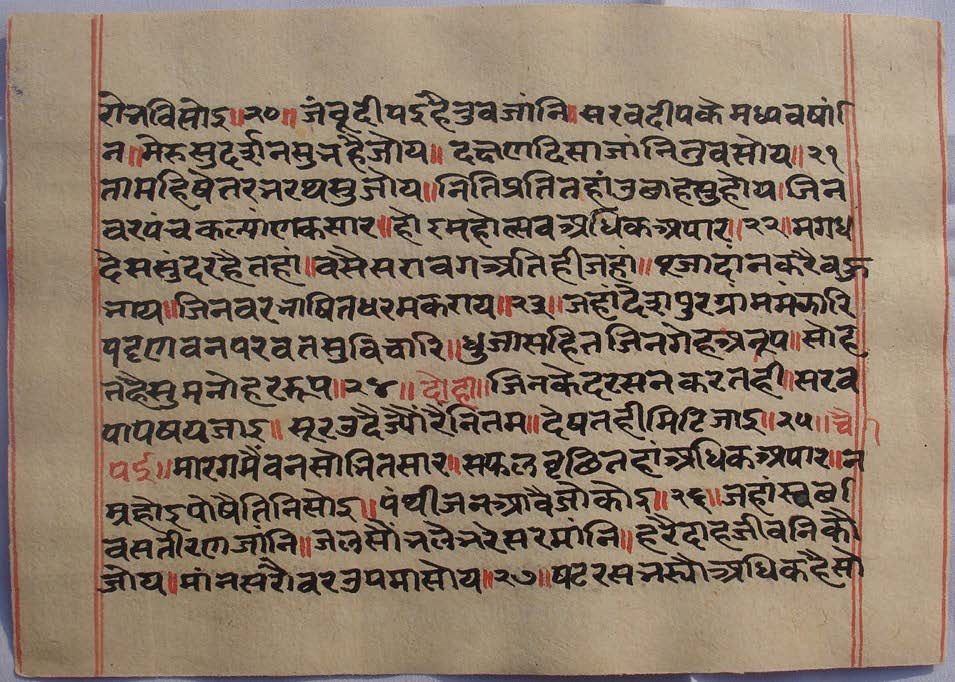 रोत्रविसोइ॥२०॥ जंबूदीपईहैनुवजांनि॥सरवदीपकेमध्यवषां
न॥मेरुसुदर्शनसुनहैजोय॥ दक्षणदिसाजांनितुवसोय॥२१
तामहिषेतरभरथसुजोय॥नितिप्रतितहांउछाहैसुहोय॥जिन
वरपंचकल्पांणकसार॥होइमहोत्सवअधिकअपार॥२२॥मगध
देससुदरहैतहां॥वसैसरावगअतिहीजहां॥पूजादांनकरैवऊ
भाय॥जिनवरभाषितधरमकराय॥२३॥जहांदेशपुरग्रांममंझारि
पट्टणवनपरवतसुविचारि॥धुजासहितजिनगेहअनूप॥सोह
तहैसुमनोहररूप॥२४॥दोहा॥जिनकेदरसनकरतही॥सरव
पापषयजाइ॥सूरउदैज्यौंरैनितम॥देषतहीमिटिजाइ॥२५॥चौ
पई॥मारगमैंवनसोभितसार॥सफलवृछितहांअधिकअपार॥न
म्रहोइपोषैतिनिसोइ॥पंथीजनआवैजोकोइ॥२६॥जहांस्वर्छ
वसतीरणजांनि॥जलसौंभलेभरेसरमांनि॥हरैदाहजीवनिकौ
जोय॥मांनसरोवरउपमासोय॥२७॥षटरसभस्यौअधिकहैसो